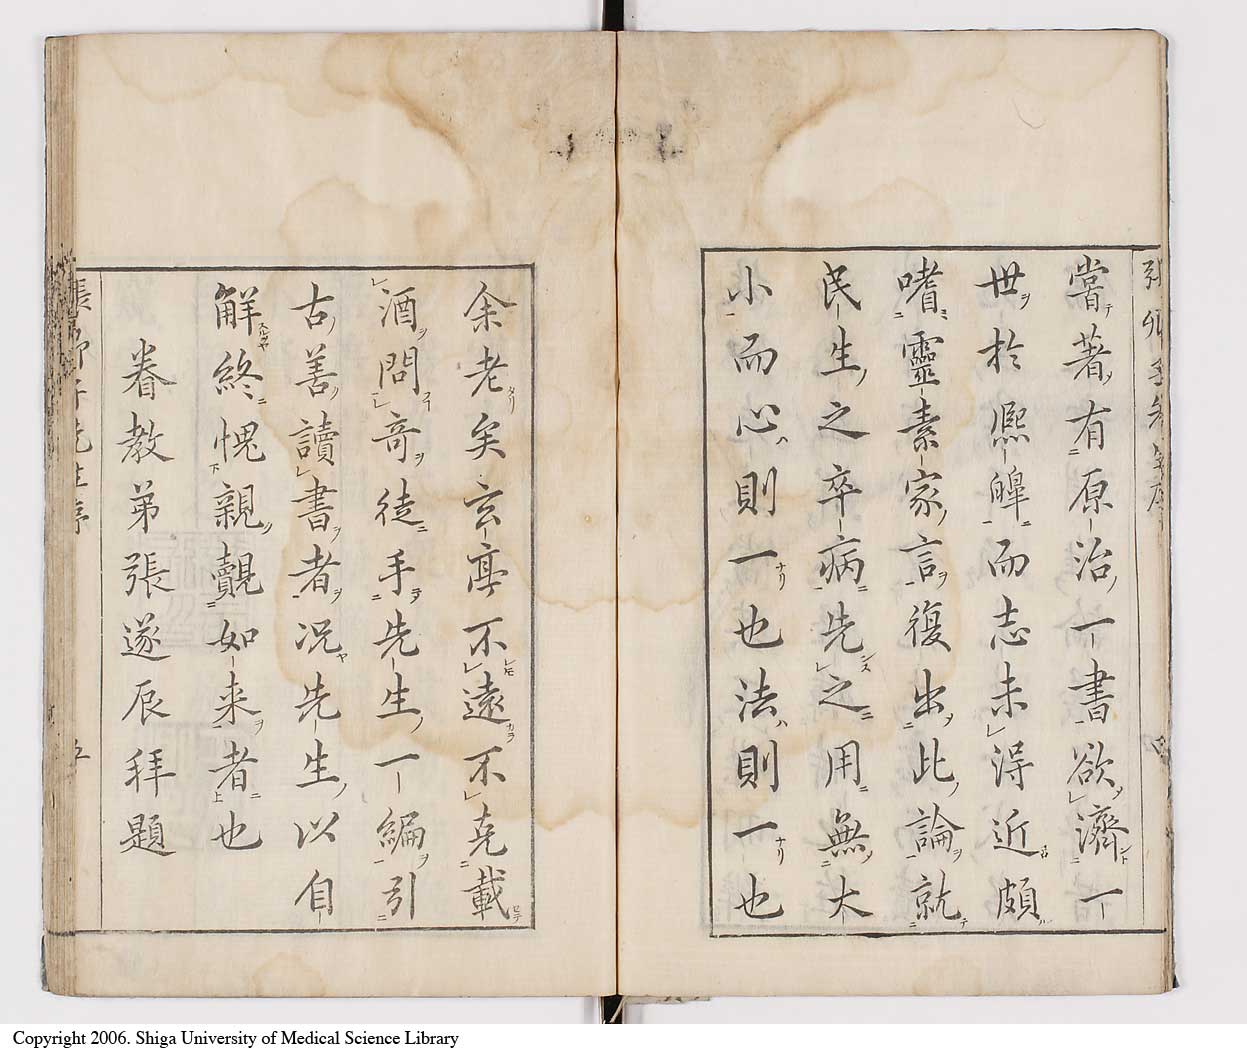 嘗著有原治一書欲濟一
世於熈皥而志未得近頗
嗜靈素家言復出此論就
民生之卒病先之用無大
小而心則一也法則一也
余老矣玄亭不遠不堯載
酒問竒徒手先生一編引
古善讀書者况先生以自
解終愧親覿如来者也
眷教弟張遂辰拜題
張卿子先生序
五
Copyright 2006. Shiga University of Medical Science Library